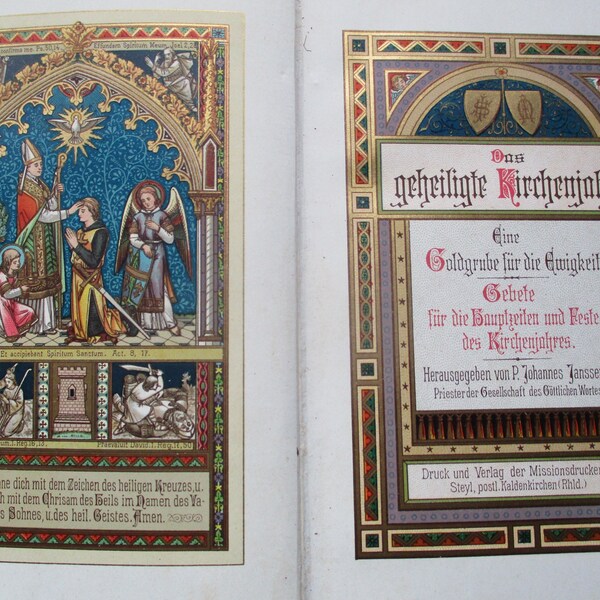 Confirma me. Ps. 50, 14.
Effundam Spiritum Meum. Joel 2, 28
Et accipiebant Spiritum Sanctum. Act. 8, 17.
um. 1. Reg. 16, 13.
Praevaluit David. 1. Reg. 17, 50
ne dich mit dem Zeichen des heiligen Kreuzes, u.
ch mit dem Chrisam des Heils im Namen des Va-
s Sohnes, u. des heil. Geistes. Amen.
Das
geheiligte Kirchenjah
Eine
Goldgrube für die Ewigkeit
Gebete
für die Hauptzeiten und Feste
des Kirchenjahres.
Herausgegeben von P. Johannes Janssen
Priester der Gesellschaft des Göttlichen Wortes
Druck und Verlag der Missionsdrucker
Steyl, postl. Kaldenkirchen (Rhld.)